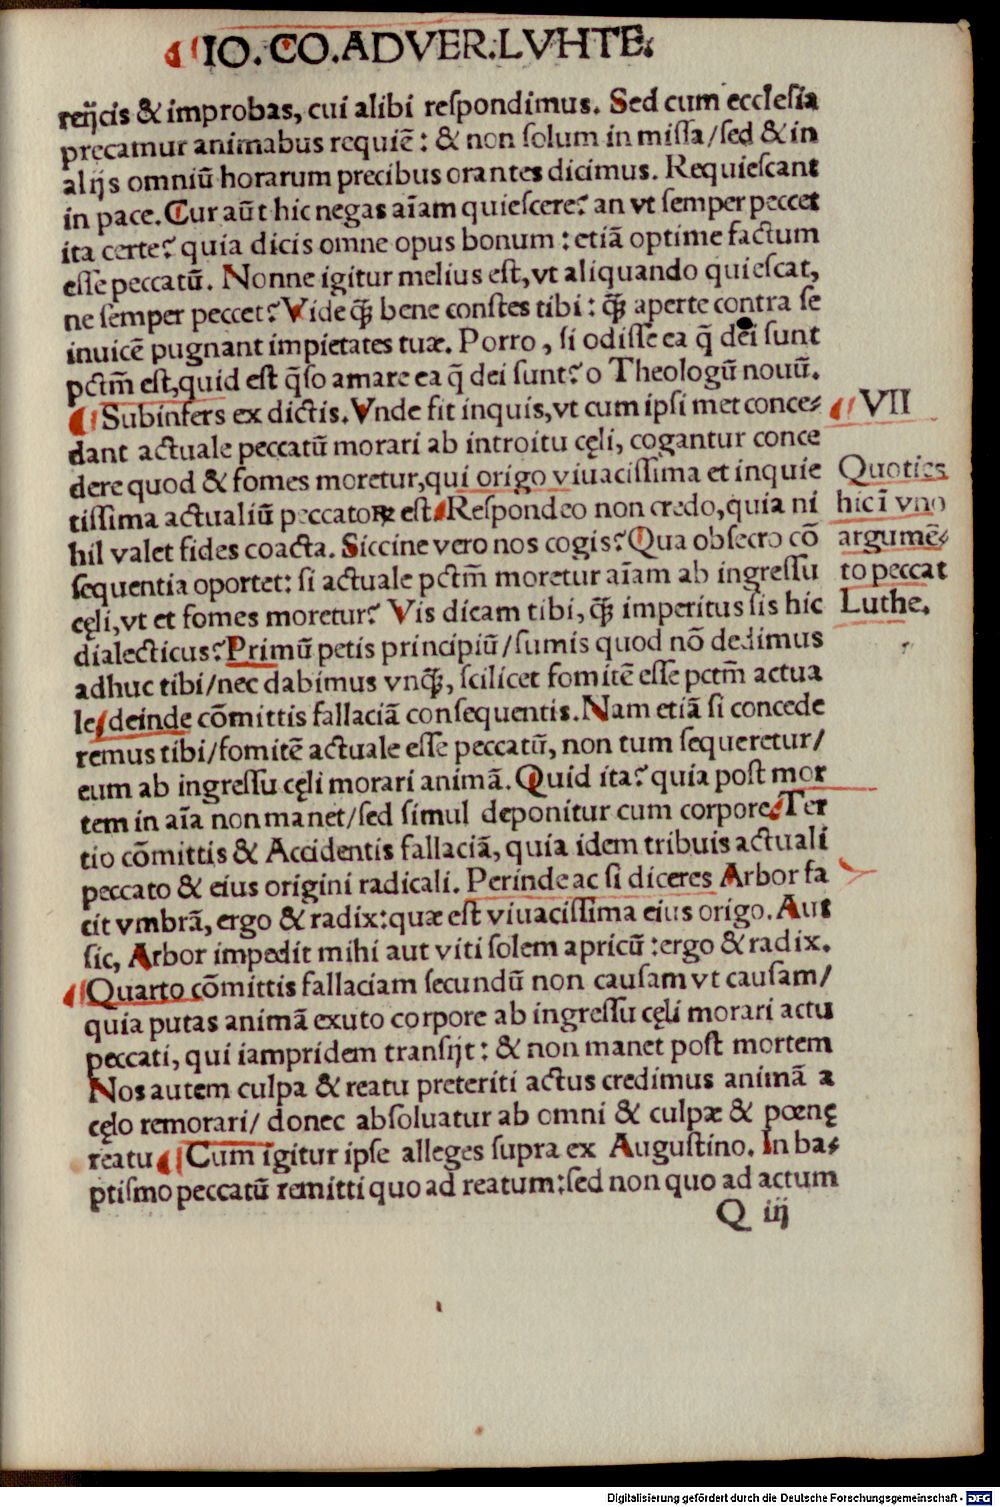 IO. CO. ADVER. LVHTE.
reijcis & improbas, cui alibi respondimus. Sed cum ecclesia
precamur animabus requiē: & non solum in missa/sed & in
alijs omniū horarum precibus orantes dicimus. Requiescant
in pace. Cur aūt hic negas aīam quiescere? an vt semper peccet
ita certe? quia dicis omne opus bonum: etiā optime factum
esse peccatū. Nonne igitur melius est, vt aliquando quiescat,
ne semper peccet? Vide qꝫ̄ bene constes tibi: qꝫ̄ aperte contra se
inuicē pugnant impietates tuæ. Porro, si odisse ea q̄ dei sunt
pctm̄ est, quid est q̄so amare ea q̄ dei sunt? o Theologū nouū.
Subinfers ex dictis. Vnde fit inquis, vt cum ipsi met conce-
VII
dant actuale peccatū morari ab introitu cęli, cogantur conce
dere quod & fomes moretur, qui origo viuacissima et inquie
Quoties
tissima actualiū peccatoꝝ est. Respondeo non credo, quia ni
hic ī vno
hil valet fides coacta. Siccine vero nos cogis? Qua obsecro cō
argumē-
sequentia oportet: si actuale pctm̄ moretur aīam ab ingressu
to peccat
cęli, vt et fomes moretur? Vis dicam tibi, qꝫ̄ imperitus sis hic
Luthe.
dialecticus? Primū petis principiū/sumis quod nō dedimus
adhuc tibi/nec dabimus vnqꝫ̄, scilicet fomitē esse pctm̄ actua
le/deinde cōmittis fallaciā consequentis. Nam etiā si concede
remus tibi/fomitē actuale esse peccatū, non tum sequeretur/
eum ab ingressu cęli morari animā. Quid ita? quia post mor
tem in aīa non manet/sed simul deponitur cum corpore. Ter
tio cōmittis & Accidentis fallaciā, quia idem tribuis actuali
peccato & eius origini radicali. Perinde ac si diceres Arbor fa
cit vmbrā, ergo & radix: quæ est viuacissima eius origo. Aut
sic, Arbor impedit mihi aut viti solem apricū: ergo & radix.
Quarto cōmittis fallaciam secundū non causam vt causam/
quia putas animā exuto corpore ab ingressu cęli morari actu
peccati, qui iampridem transijt: & non manet post mortem
Nos autem culpa & reatu preteriti actus credimus animā a
cęlo remorari/ donec absoluatur ab omni & culpæ & pœnę
reatu. Cum igitur ipse alleges supra ex Augustino. In ba-
ptismo peccatū remitti quo ad reatum: sed non quo ad actum
Q iij
Digitalisierung gefördert durch die Deutsche Forschungsgemeinschaft - DFG